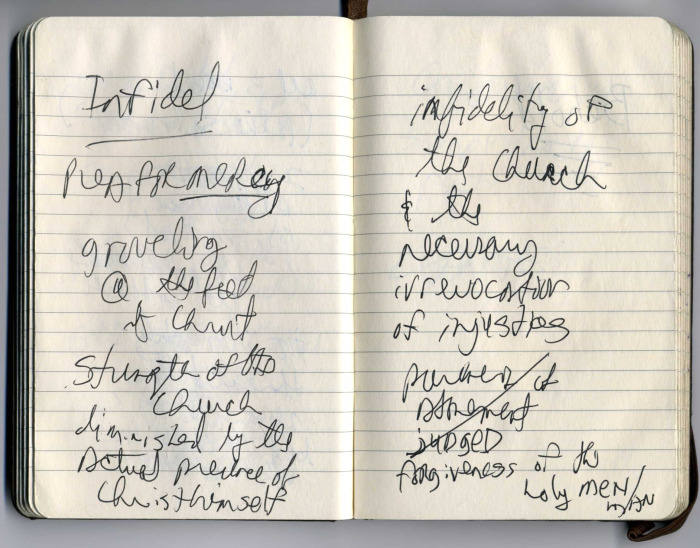 Infidel
Plea for mercy
groveling
@ the feet
of Christ
Strength of the
Church
diminished by the
Actual presence of
Christ himself
infidelity of
the Church
& the
necessary
irrevocation
of injustices
of
Atonement
judged
forgiveness of the
holy MEN/
MAN